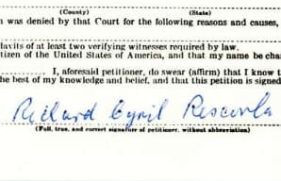 (County) (State)
n was denied by that Court for the following reasons and causes,
davits of at least two verifying witnesses required by law.
tizen of the United States of America, and that my name be cha
I, aforesaid petitioner, do swear (affirm) that I know t
the best of my knowledge and belief, and that this petition is signed
Richard Cyril Rescorla
(Full, true, and correct signature of petitioner, without abbreviation)